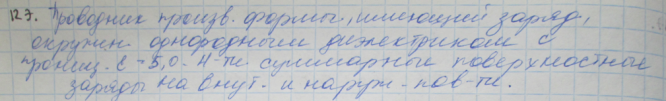 127. Проводник произв. формы, имеющий заряд,
окружен однородным диэлектриком с
прониц. ε = 5,0. Н-ти суммарные поверхностные
заряды на внут. и наруж. пов-ти.